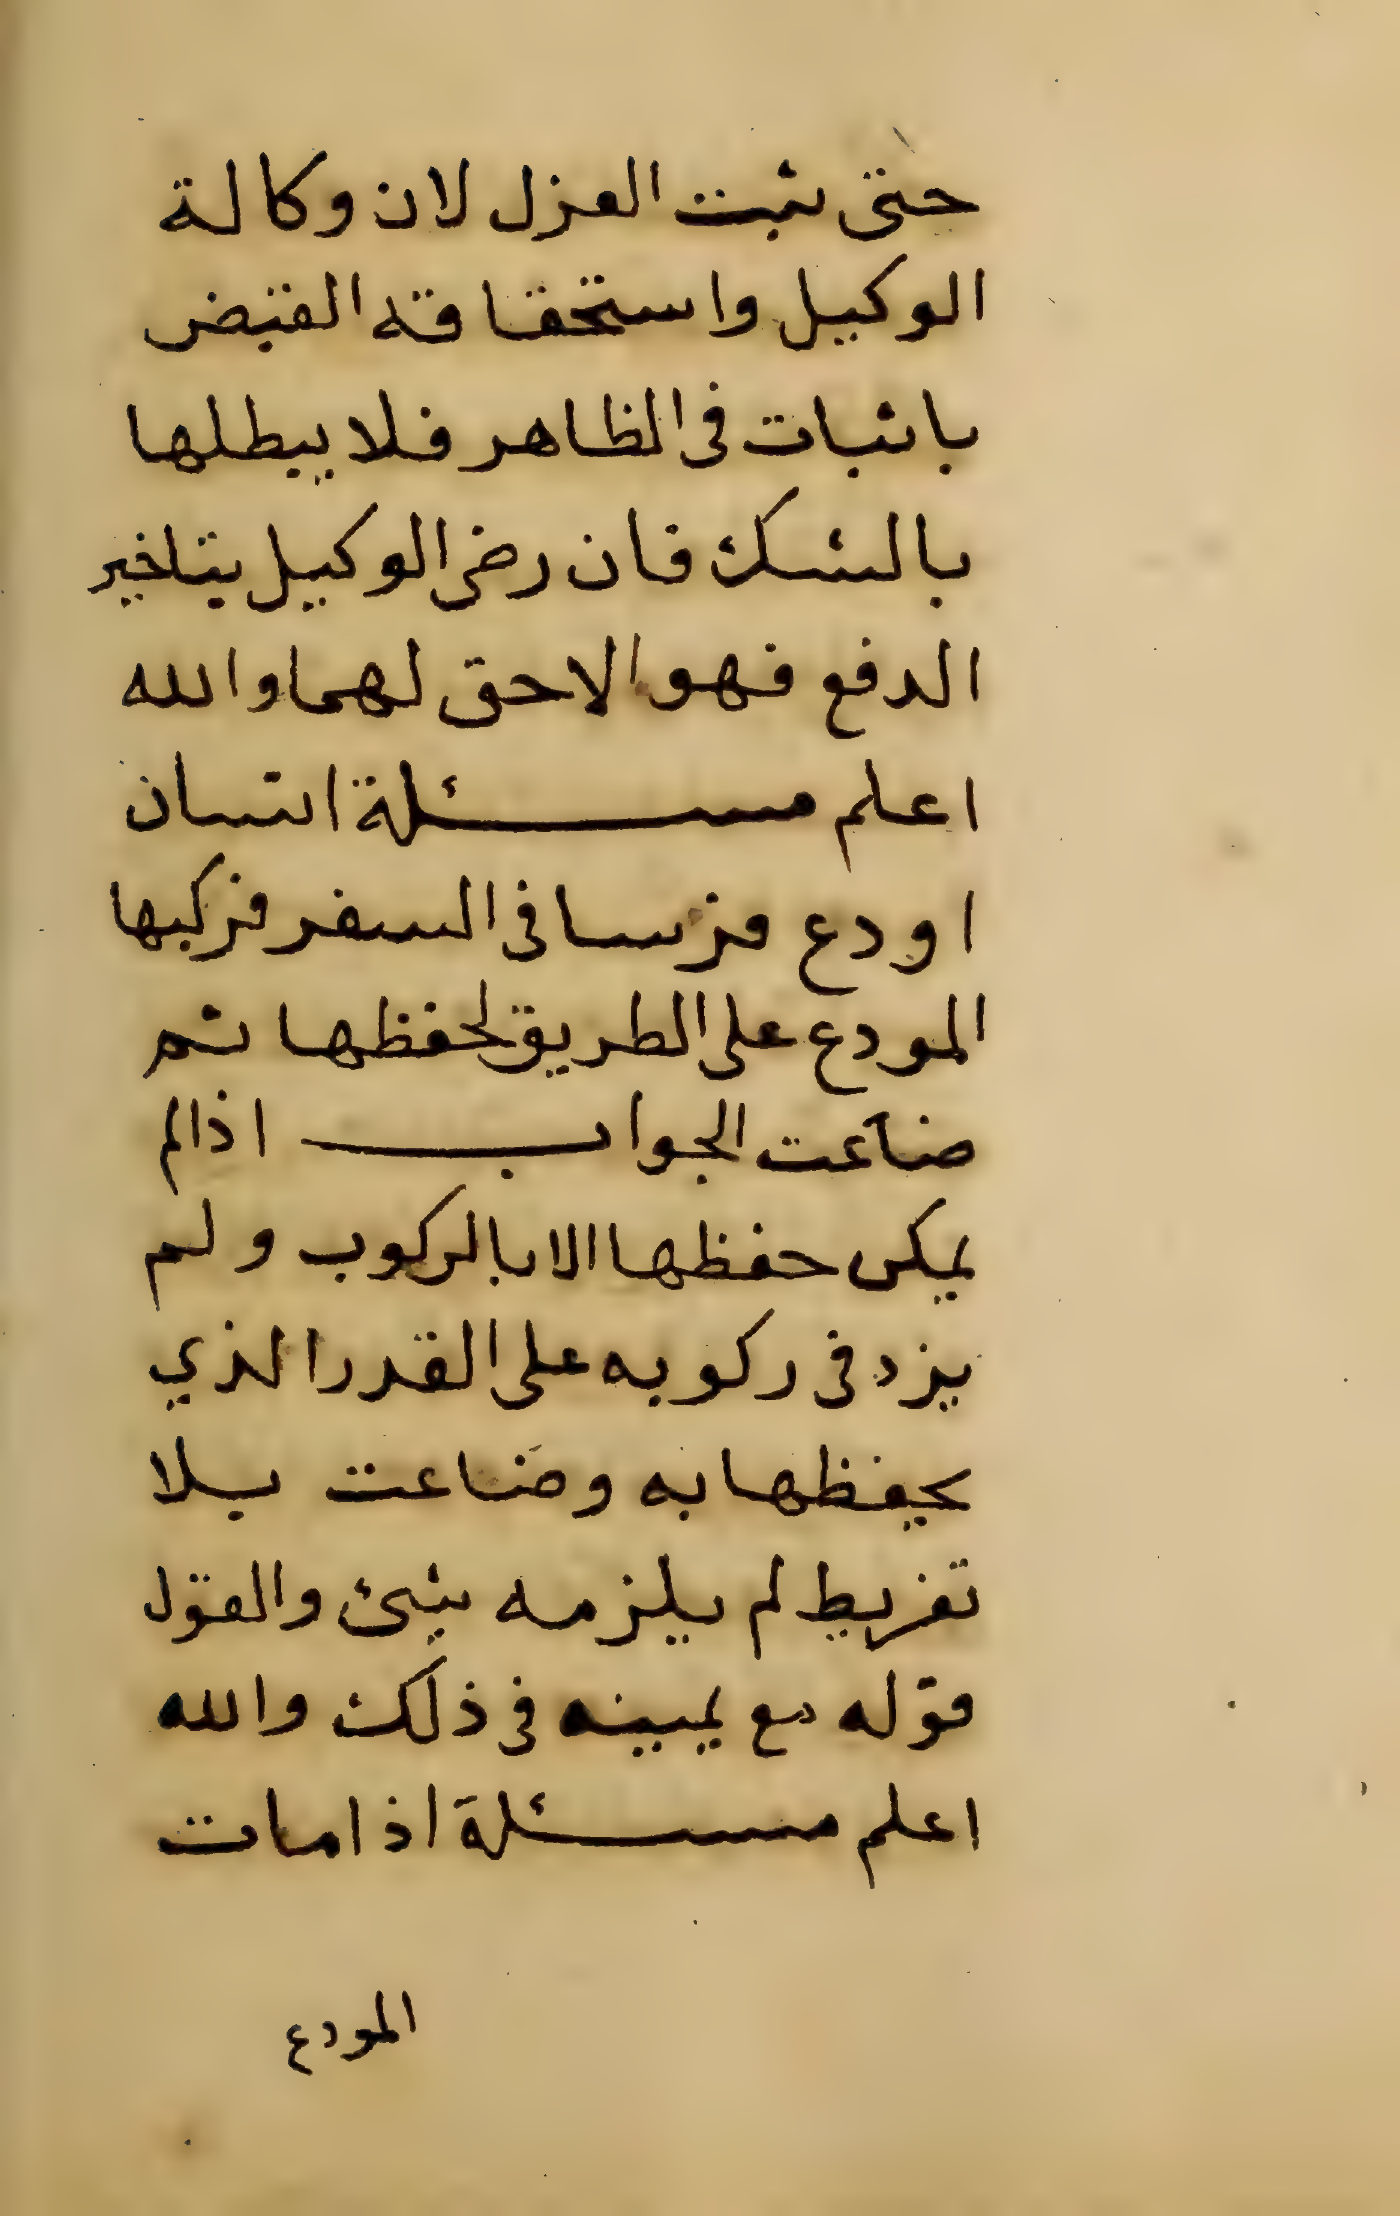 حتى ثبت العزل لان وكالة
الوكيل واستحقاقه القبض
باثبات في الظاهر فلا يبطلها
بالشك فان رضي الوكيل بتاخير
الدفع فهو الاحق لهما والله
اعلم مسئلة انسان
اودع فرسا في السفر فركبها
المودع على الطريق لحفظها ثم
ضاعت الجواب اذا لم
يمكن حفظها الا بالركوب ولم
يزد في ركوبه على القدر الذي
يحفظها به وضاعت بلا
تفريط لم يلزمه شئ والقول
قوله مع يمينه في ذلك والله
اعلم مسئلة اذا مات
المودع